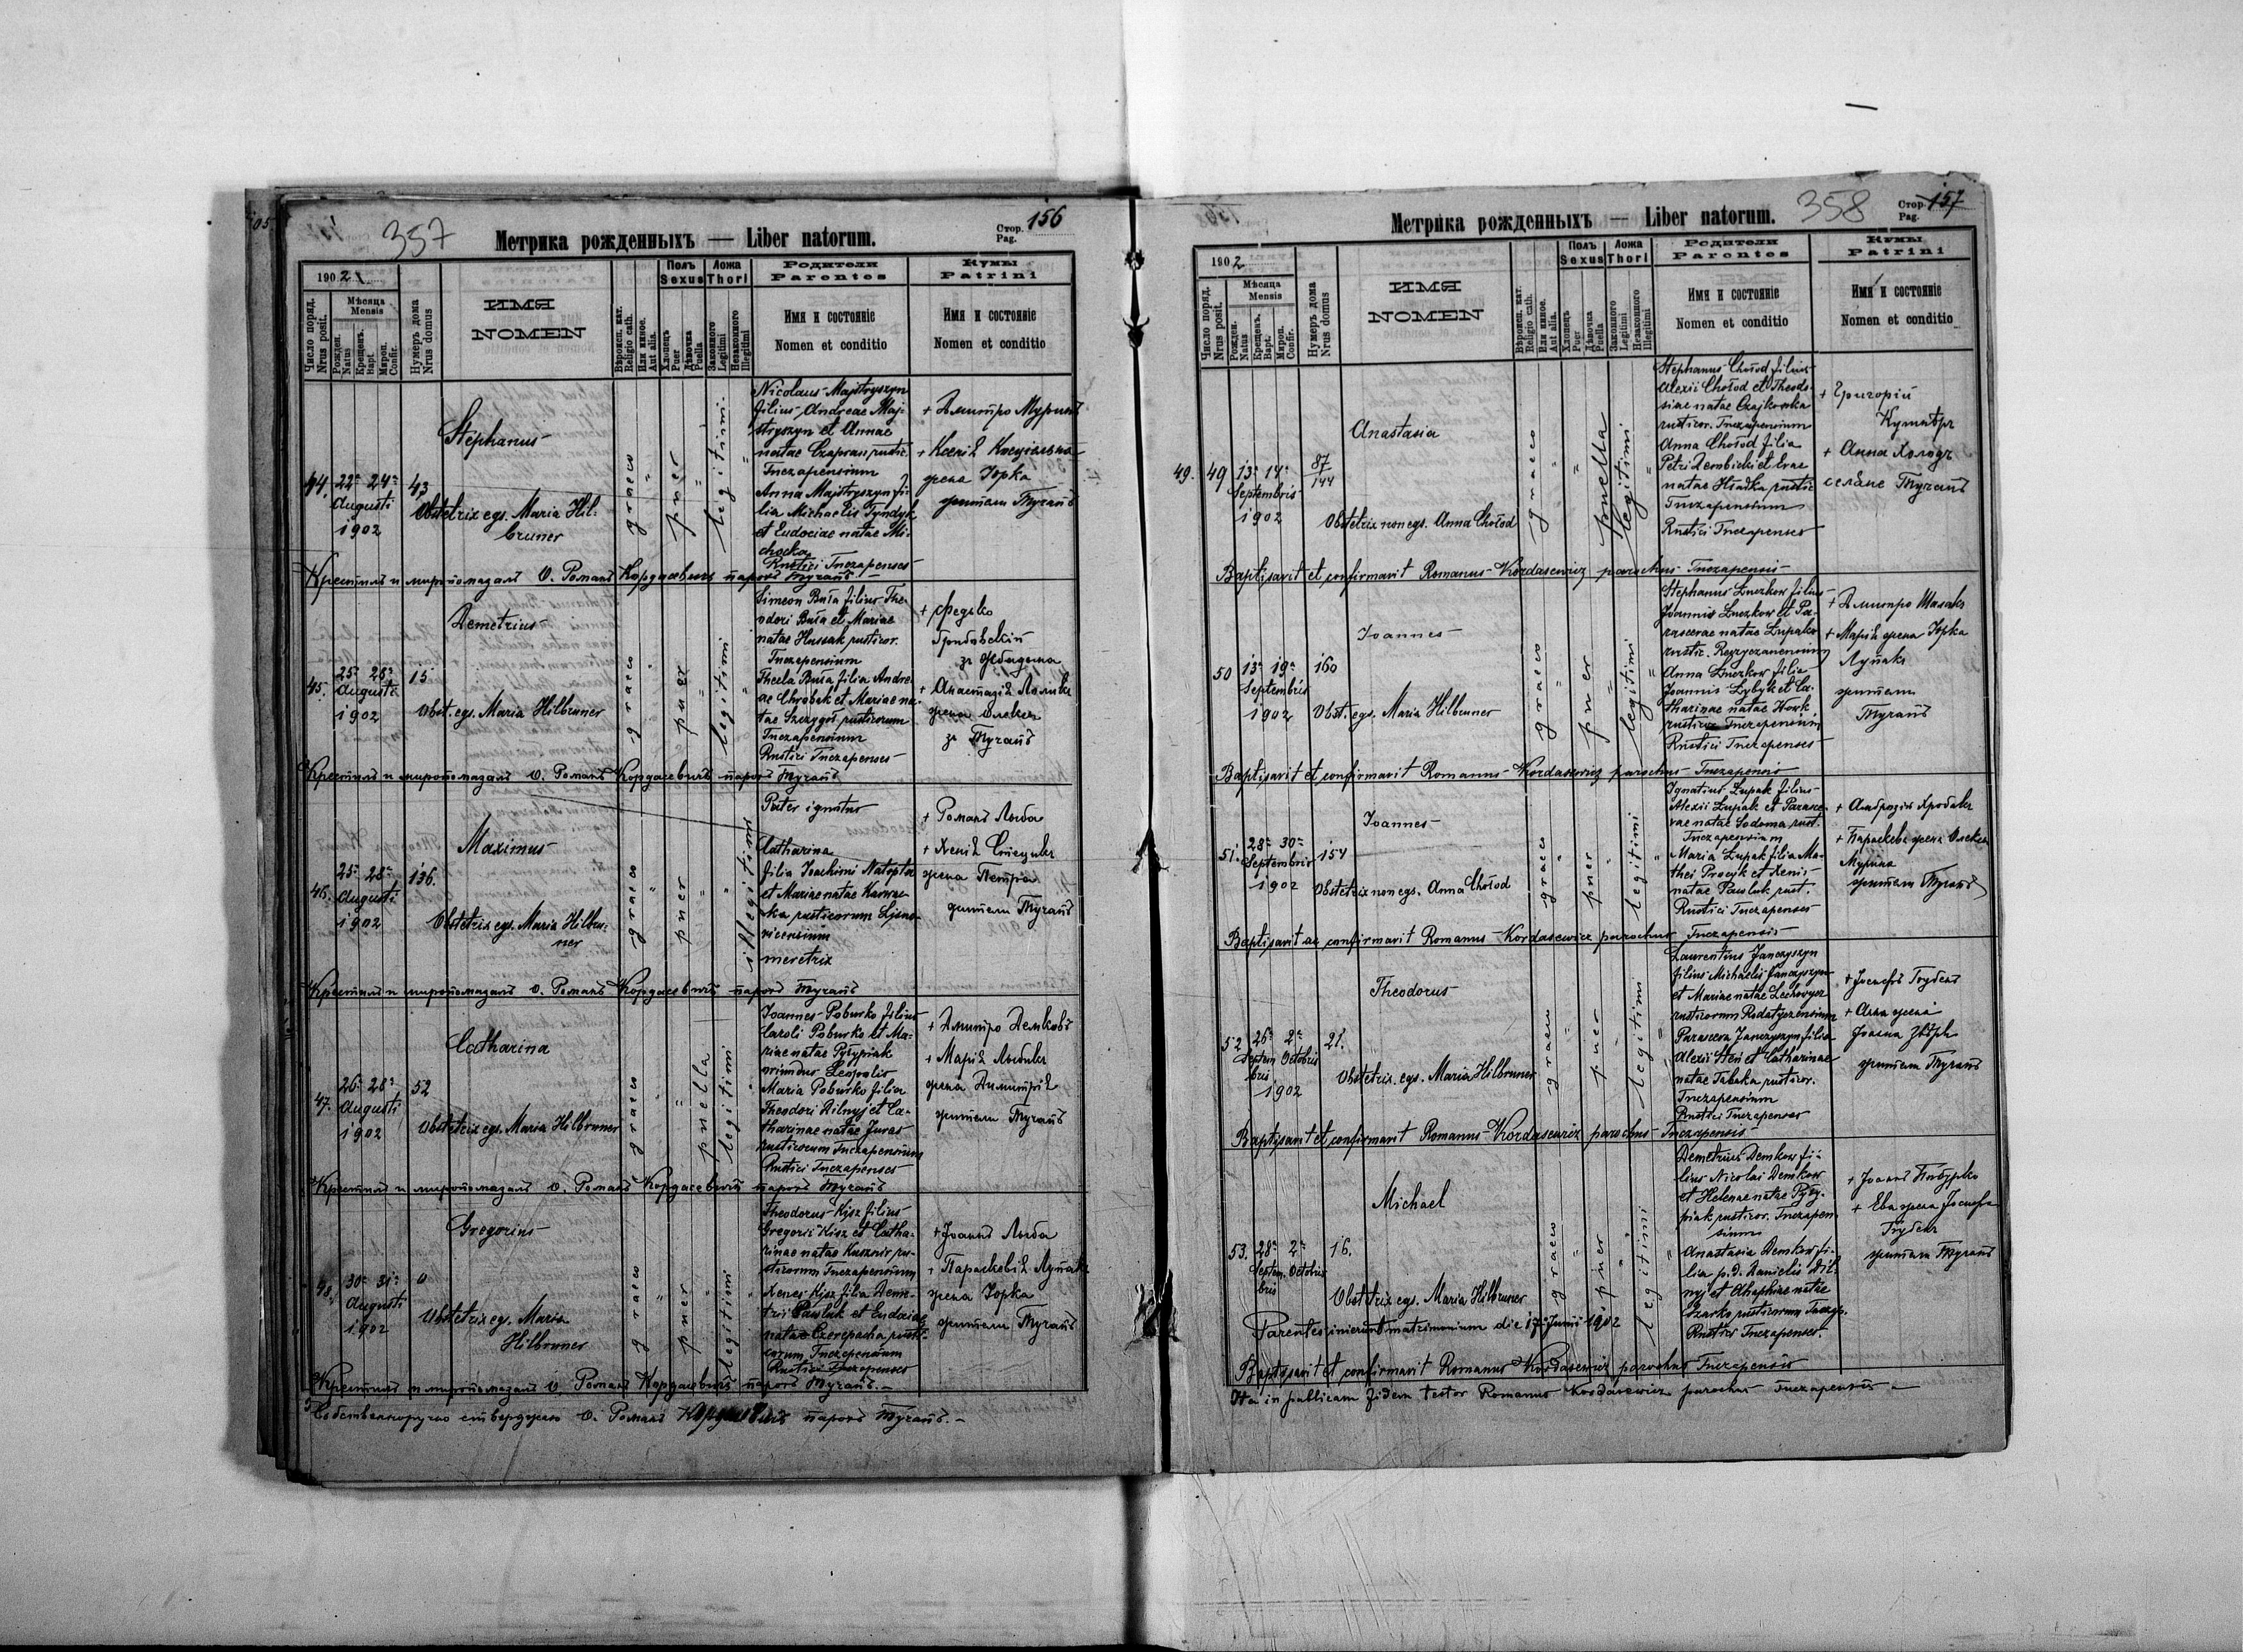 357
Метрика рожденныхъ — Liber natorum.
Стор. Pag. 156
1902
Число поряд. Nrus posit.
Мѣсяца Mensis
Рожден. Natus
Крещенъ. Bapt.
Миропом. Confir.
Нумеръ дома Nrus domus
ИМЯ
NOMEN
Вѣроисп. кат. Religio cath.
Или иншое. Aut alia.
Полъ Sexus
Хлопецъ Puer
Дѣвочка Puella
Ложа Thori
Законного Legitimi
Незаконного Illegitimi
Родители
Parentes
Имя и состояніе
Nomen et conditio
Кумы
Patrini
Имя и состояніе
Nomen et conditio
44.
22a 24a
Augusti
1902
43
Stephanus
Obstetrix egs. Maria Hil-
bruner
graeco
puer
legitimi
Nicolaus Majstryszyn
filius Andreae Maj-
stryszyn et Annae
natae Czapran rustic.
Tuczapensium
Anna Majstryszyn fi-
lia Michaelis Tyndyk
et Eudociae natae Mi-
chocka
Rustici Tuczapenses
+ Дмитро Муринъ
+ Ксенія
жена Юрка
жители Тучапъ
Крестилъ и миропомазалъ О. Романъ Кордасевичъ парохъ Тучапъ
45.
25a 28a
Augusti
1902
15
Demetrius
Obst. egs. Maria Hilbruner
graeco
puer
legitimi
Simeon Buła filius The-
odori Buła et Mariae
natae Hussak rusticor.
Tuczapensium
Thecla Buła filia Andre-
ae Chrobak et Mariae na-
tae Szczygoł rusticorum
Tuczapensium
Rustici Tuczapenses
+ Федько
Грабовскій
+ Анастазія
жена Олексы
зъ Тучапъ
Крестилъ и миропомазалъ О. Романъ Кордасевичъ парохъ Тучапъ
46.
25a 28a
Augusti
1902
136.
Maximus
Obstetrix egs. Maria Hilbru-
ner
graeco
puer
illegitimi
Pater ignotus
Catharina
filia Joachimi Natopta
et Mariae natae
rusticorum
meretrix
+ Романъ Лыба
+ Ксенія
жена Петра
жители Тучапъ
Крестилъ и миропомазалъ О. Романъ Кордасевичъ парохъ Тучапъ
47.
26a 28a
Augusti
1902
52
Catharina
Obstetrix egs. Maria Hilbruner
graeco
puella
legitimi
Joannes Poburko filius
Caroli Poburko et Ma-
riae natae Pyłypiak
oriundus Leopolis
Maria Poburko filia
Theodori Dilnyj et Ca-
tharinae natae Juras
rusticorum Tuczapensium
Rustici Tuczapenses
+ Дмитро Демковъ
+ Марія
жена Димитрія
жители Тучапъ
Крестилъ и миропомазалъ О. Романъ Кордасевичъ парохъ Тучапъ
48.
30a 31a
Augusti
1902
0
Gregorius
Obstetrix eg. Maria
Hilbruner
graeco
puer
legitimi
Theodorus Kisz filius
Gregorii Kisz et Catha-
rinae natae Kusznir ru-
sticorum Tuczapensium
Xenes Kisz filia Deme-
trii Pawluk et Eudociae
natae Czerepacha rusti-
corum Tuczapensium
Rustici Tuczapenses
+ Іоаннъ Лыба
+ Параскевія Лупакъ
жена Юрка
жители Тучапъ
Крестилъ и миропомазалъ О. Романъ Кордасевичъ парохъ Тучапъ.
Собственноручно стверджаю О. Романъ Кордасевичъ парохъ Тучапъ.
358
Метрика рожденныхъ — Liber natorum.
Стор. Pag. 157
1902
Число поряд. Nrus posit.
Мѣсяца Mensis
Рожден. Natus
Крещенъ. Bapt.
Миропом. Confir.
Нумеръ дома Nrus domus
ИМЯ
NOMEN
Вѣроисп. кат. Religio cath.
Или иншое. Aut alia.
Полъ Sexus
Хлопецъ Puer
Дѣвочка Puella
Ложа Thori
Законного Legitimi
Незаконного Illegitimi
Родители
Parentes
Имя и состояніе
Nomen et conditio
Кумы
Patrini
Имя и состояніе
Nomen et conditio
49. 49
13a 14a
Septembris
1902
87
144
Anastasia
Obstetrix non egs. Anna Chołod
graeco
puella
legitimi
Stephanus Chołod filius
Alexii Chołod et Theodo-
siae natae Czajkowska
rusticor. Tuczapensium
Anna Chołod filia
Petri Zerobicki et Evae
natae Hładka rustic.
Tuczapensium
Rustici Tuczapenses
+ Григорій
+ Анна Холодъ
селяне Тучапъ
Baptisavit et confirmavit Romanus Kordasewicz parochus Tuczapensis
50
13a 19a
Septembris
1902
160
Joannes
Obst. egs. Maria Hilbruner
graeco
puer
legitimi
Stephanus Łuczkow filius
Joannis Łuczkow et Pa-
rascevae natae Łupako
rustic.
Anna Łuczkow filia
Joannis Łybyk et Ca-
tharinae natae Hawk
rusticor. Tuczapensium
Rustici Tuczapenses
+ Дмитро
+ Марія жена Юрка
Лупакъ
жители
Тучапъ
Baptisavit et confirmavit Romanus Kordasewicz parochus Tuczapensis
51.
28a 30a
Septembris
1902
154
Joannes
Obstetrix non egs. Anna Chołod
graeco
puer
legitimi
Ignatius Łupak filius
Alexii Łupak et Parasce-
vae natae Sodoma rust.
Tuczapensium
Maria Łupak filia Ma-
thei Procyk et Xenis
natae Pawluk rust.
Rustici Tuczapenses
+ Амброзій Хробакъ
+ Параскева жена Олексы
Мурина
жители Тучапъ
Baptisavit ac confirmavit Romanus Kordasewicz parochus Tuczapensis
52
26a 2a
Septem- Octobris
bris
1902
21.
Theodorus
Obstetrix egs. Maria Hilbruner
graeco
puer
legitimi
Laurentius Janczyszyn
filius Michaelis Janczyszyn
et Mariae natae Lechowycz
rusticorum Rodatyczensium
Parasceva Janczyszyn filia
Alexii Hen et Catharinae
natae Tabaka rusticor.
Tuczapensium
Rustici Tuczapenses
+ Іосифъ
+ Анна жена
Іоанна
жители Тучапъ
Baptisavit et confirmavit Romanus Kordasewicz parochus Tuczapensis
53.
28a 2a
Septem- Octobris
bris
16.
Michael
Obstetrix egs. Maria Hilbruner
graeco
puer
legitimi
Demetrius Demkow fi-
lius Nicolai Demkow
et Helenae natae Pyły-
piak rusticor. Tuczapen-
sium
Anastasia Demkow fi-
lia p. d. Danielis Dil-
nyj et Ahaphiae natae
Czarko rusticorum Tuczap.
Rustici Tuczapenses.
+ Іоаннъ Побурко
+ Ева жена Іосифа
жители Тучапъ
Parentes inierunt matrimonium die 17 Junii 1902
Baptisavit et confirmavit Romanus Kordasewicz parochus Tuczapensis
Ita in publicam fidem testor Romanus Kordasewicz parochus Tuczapensis